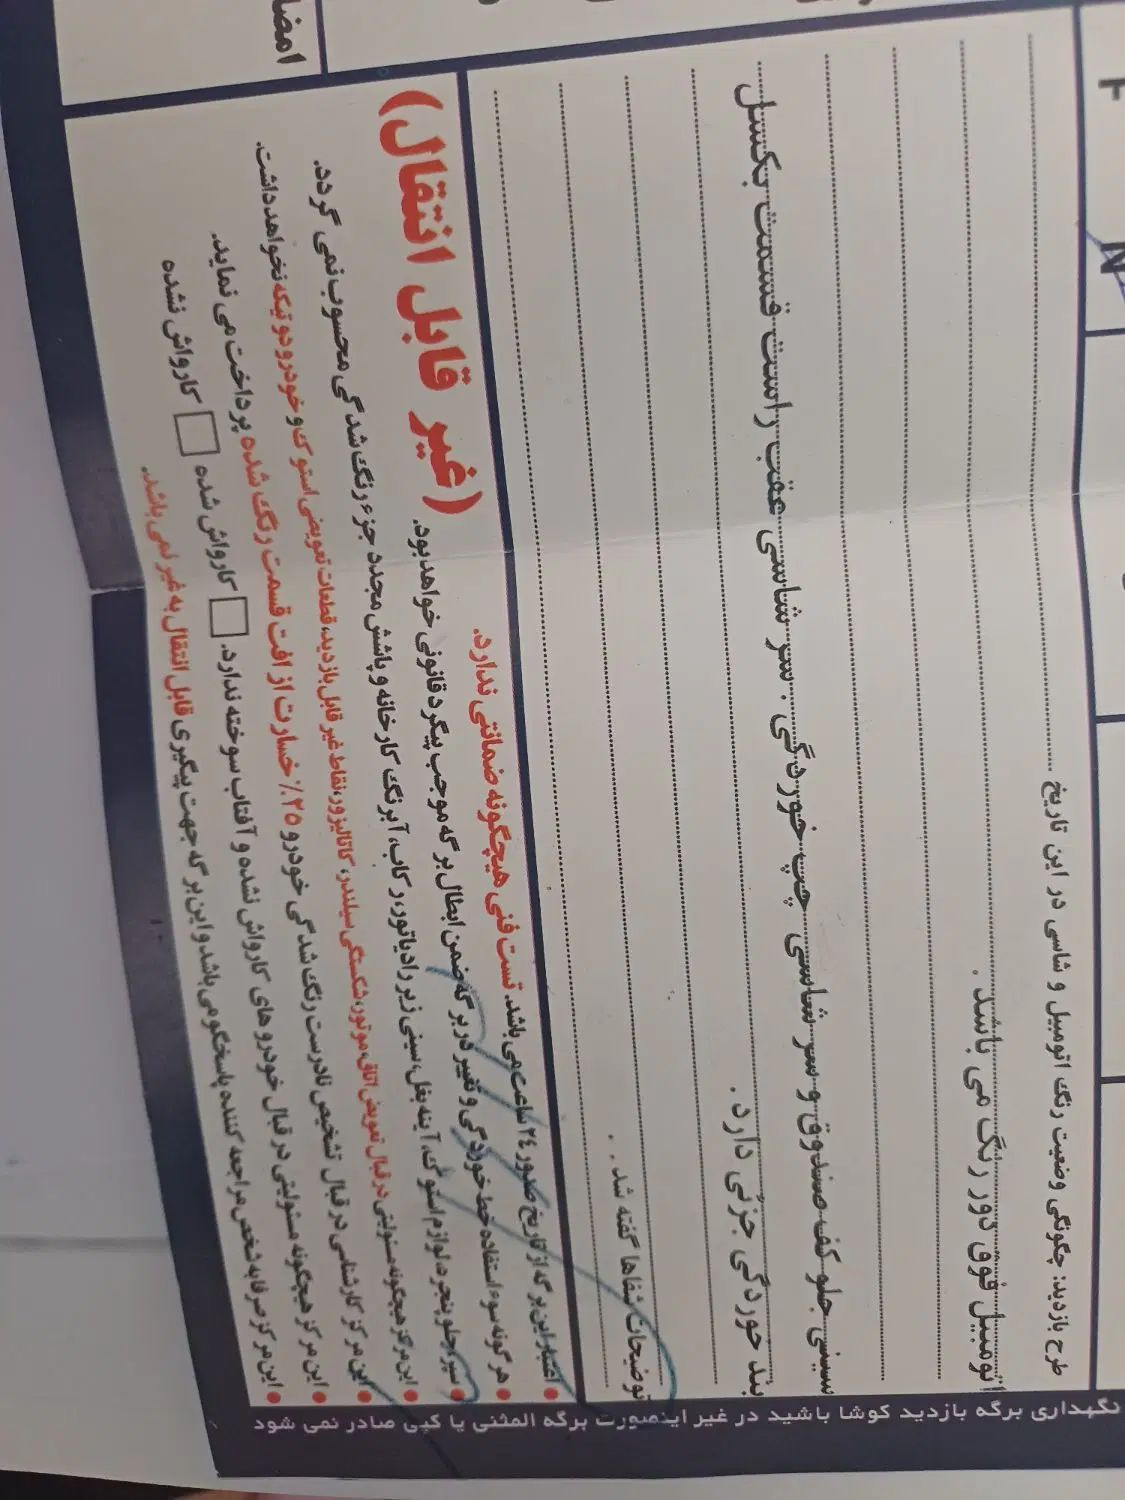 امضا
طرح بازدید: چگونگی وضعیت رنگ اتومبیل و شاسی در این تاریخ
اتومبیل فوق دور رنگ می باشد .
سینی جلو کف صندوق و سر شاسی چپ خوردگی . سر شاسی عقب راست قسمت بکسل
بند خوردگی جزئی دارد .
توضیحات شفاها گفته شد . .
اعتبار این برگه از تاریخ صدور ۲۴ ساعت می باشد. تست فنی هیچگونه ضمانتی ندارد.
(غیر قابل انتقال)
هر گونه سوء استفاده خط خوردگی و تغییر در برگه ضمن ابطال برگه موجب پیگرد قانونی خواهد بود.
سپر، جلو پنجره، لوازم استوک، آینه بغل، سینی زیر رادیاتور، رکاب، آبرنگ کارخانه و پاشش مجدد جزء رنگ شدگی محسوب نمی گردد.
این مرکز هیچگونه مسئولیتی در قبال تعویض اتاق، موتور، شکستگی سیلندر، کاتالیزور، نقاط غیر قابل بازدید، قطعات تعویضی استوک و خودرو دو تیکه نخواهد داشت.
این مرکز کارشناسی در قبال تشخیص نادرست رنگ شدگی خودرو ۲۵٪ خسارت از افت قسمت رنگ شده پرداخت می نماید.
این مرکز هیچگونه مسئولیتی در قبال خودروهای کارواش نشده و آفتاب سوخته ندارد. کارواش شده کارواش نشده
این مرکز صرفا به شخص مراجعه کننده پاسخگو می باشد و این برگه جهت پیگیری قابل انتقال به غیر نمی باشد.
نگهداری برگه بازدید کوشا باشید در غیر اینصورت برگه المثنی یا کپی صادر نمی شود
F
N